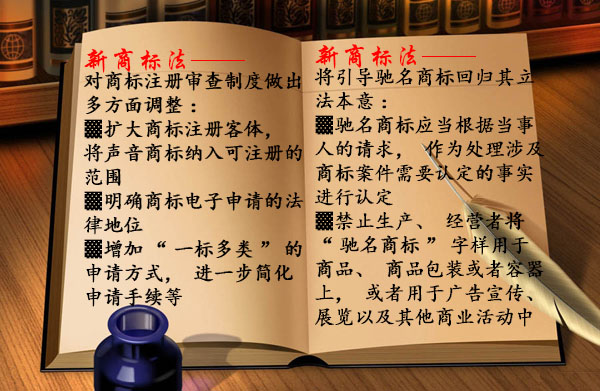 新商标法——
对商标注册审查制度做出
多方面调整：
▓扩大商标注册客体，
将声音商标纳入可注册的
范围
▓明确商标电子申请的法
律地位
▓增加“一标多类”的
申请方式， 进一步简化
申请手续等
新商标法——
将引导驰名商标回归其立
法本意：
▓驰名商标应当根据当事
人的请求， 作为处理涉及
商标案件需要认定的事实
进行认定
▓禁止生产、 经营者将
“驰名商标”字样用于
商品、 商品包装或者容器
上， 或者用于广告宣传、
展览以及其他商业活动中